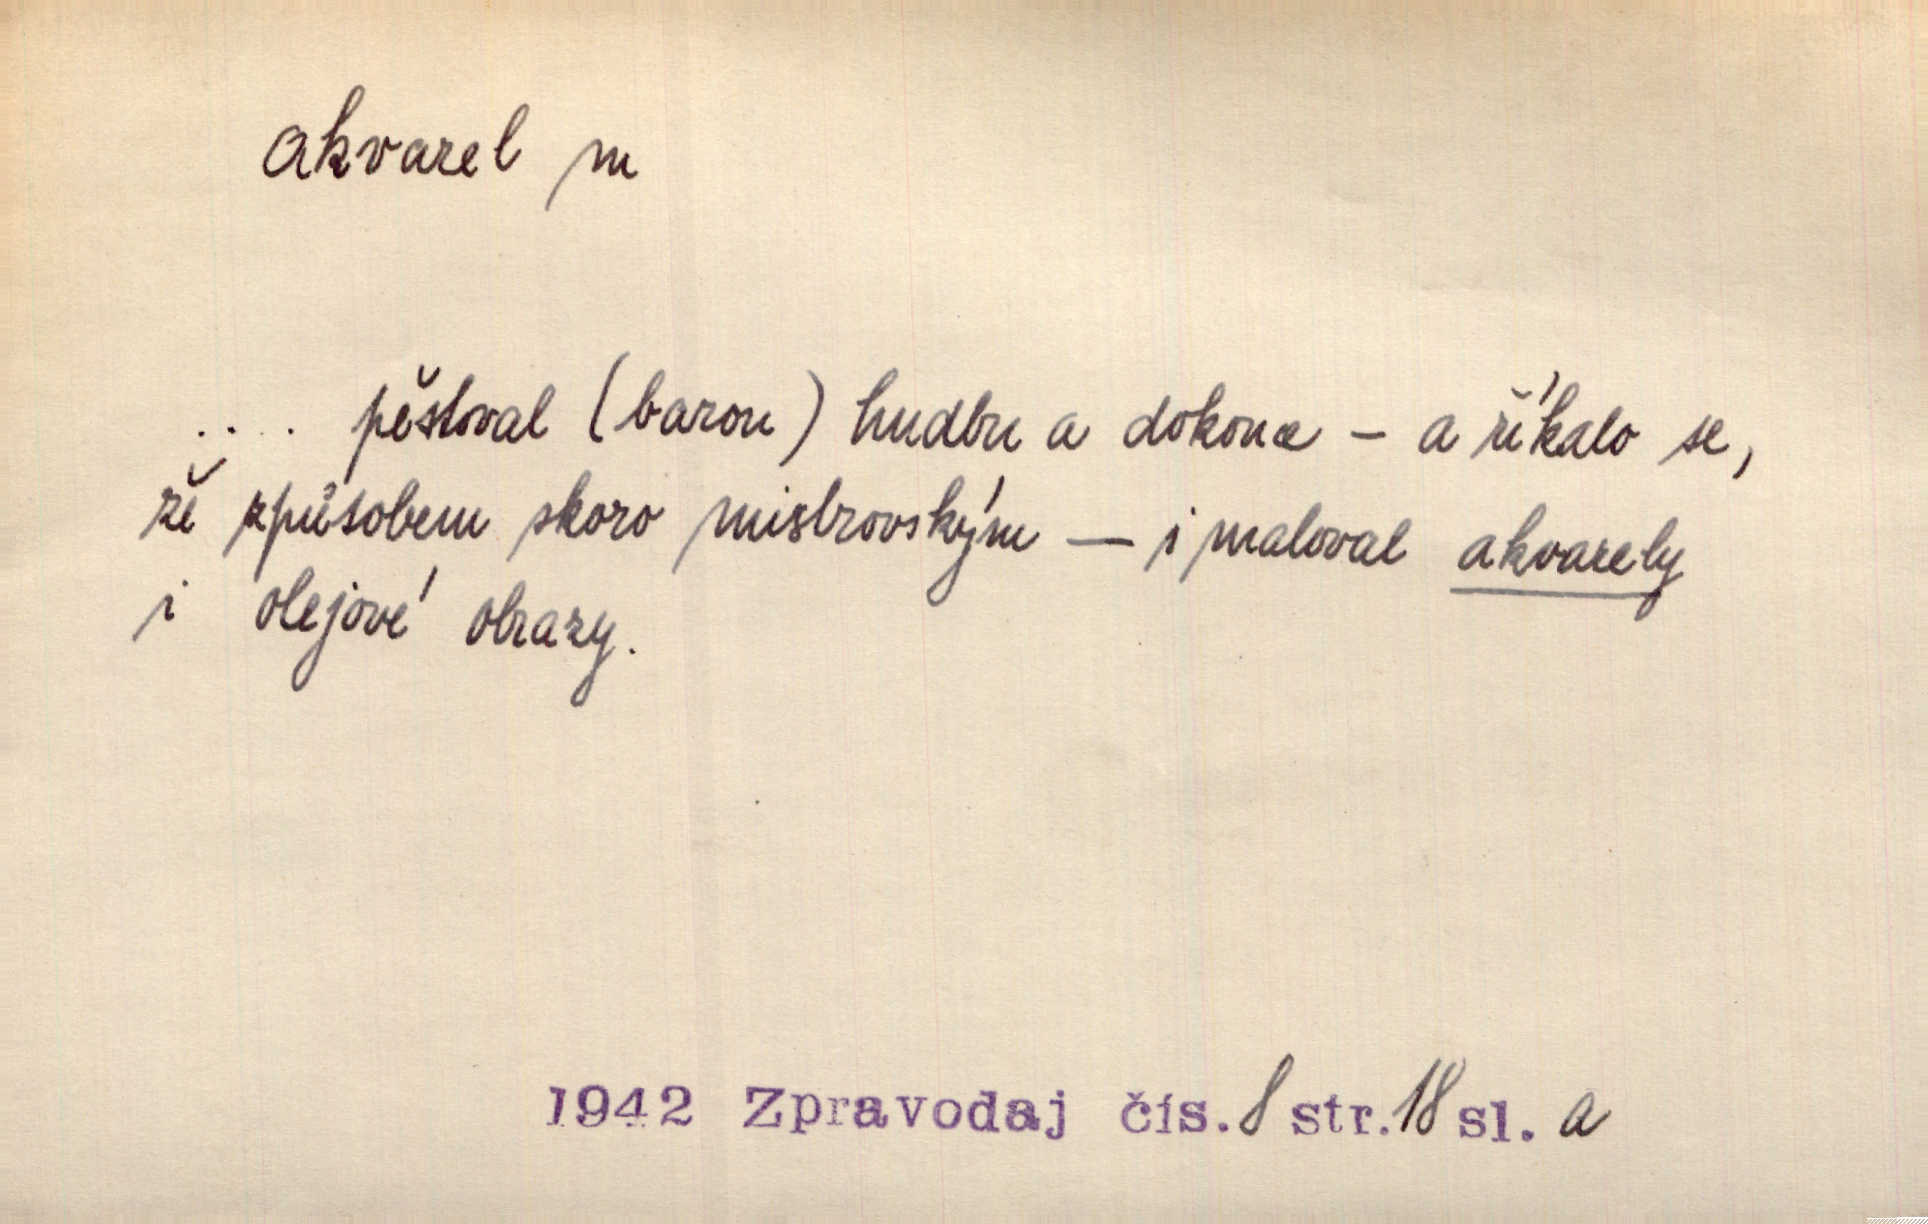 akvarel m
.... pěstoval (baron) hudbu a dokonce – a říkalo se,
že způsobem skoro mistrovským — i maloval akvarely
i olejové obrazy.
1942 Zpravodaj čís. 8 str. 18 sl. a